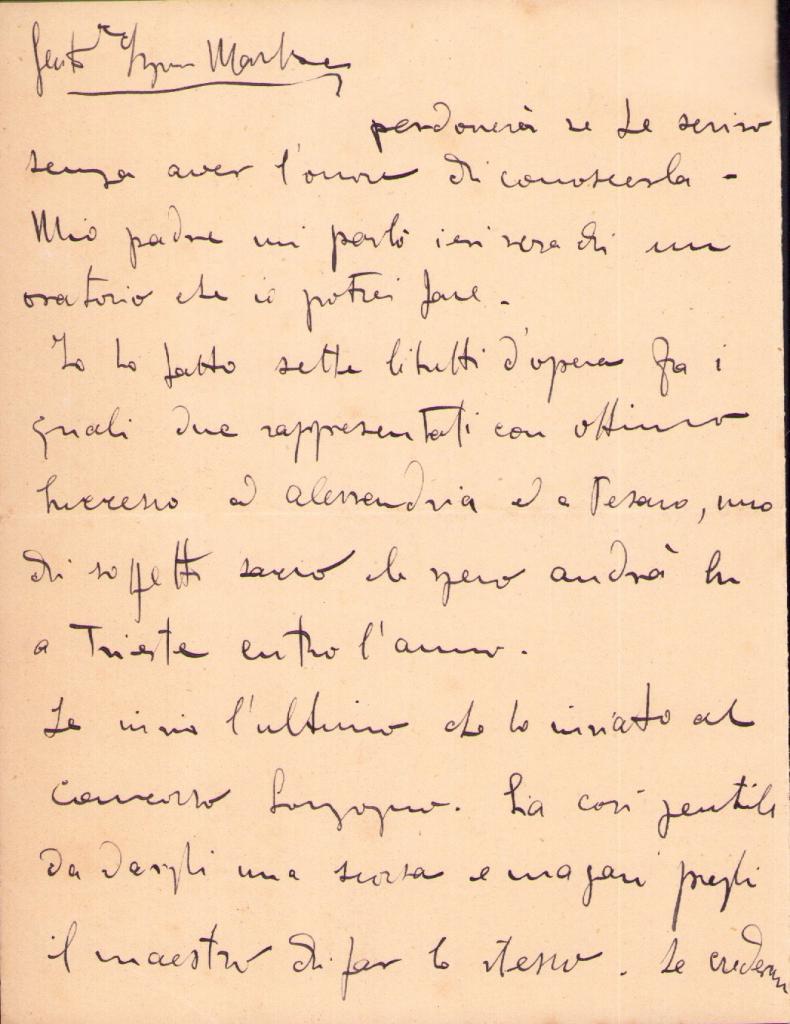 Gent.re Signor
perdonerà se Le scrivo
senza aver l'onore di conoscerla -
Mio padre mi parlò ieri sera di un
oratorio che io potrei fare -
Io ho fatto sette libretti d'opera fra i
quali due rappresentati con ottimo
successo ad Alessandria ed a Pesaro, uno
di soggetto sacro che spero andrà su
a Trieste entro l'anno.
Le invio l'ultimo che ho inviato al
concorso Sonzogno. Sia così gentile
da dargli una scorsa e magari preghi
il maestro di far lo stesso. Se crederan